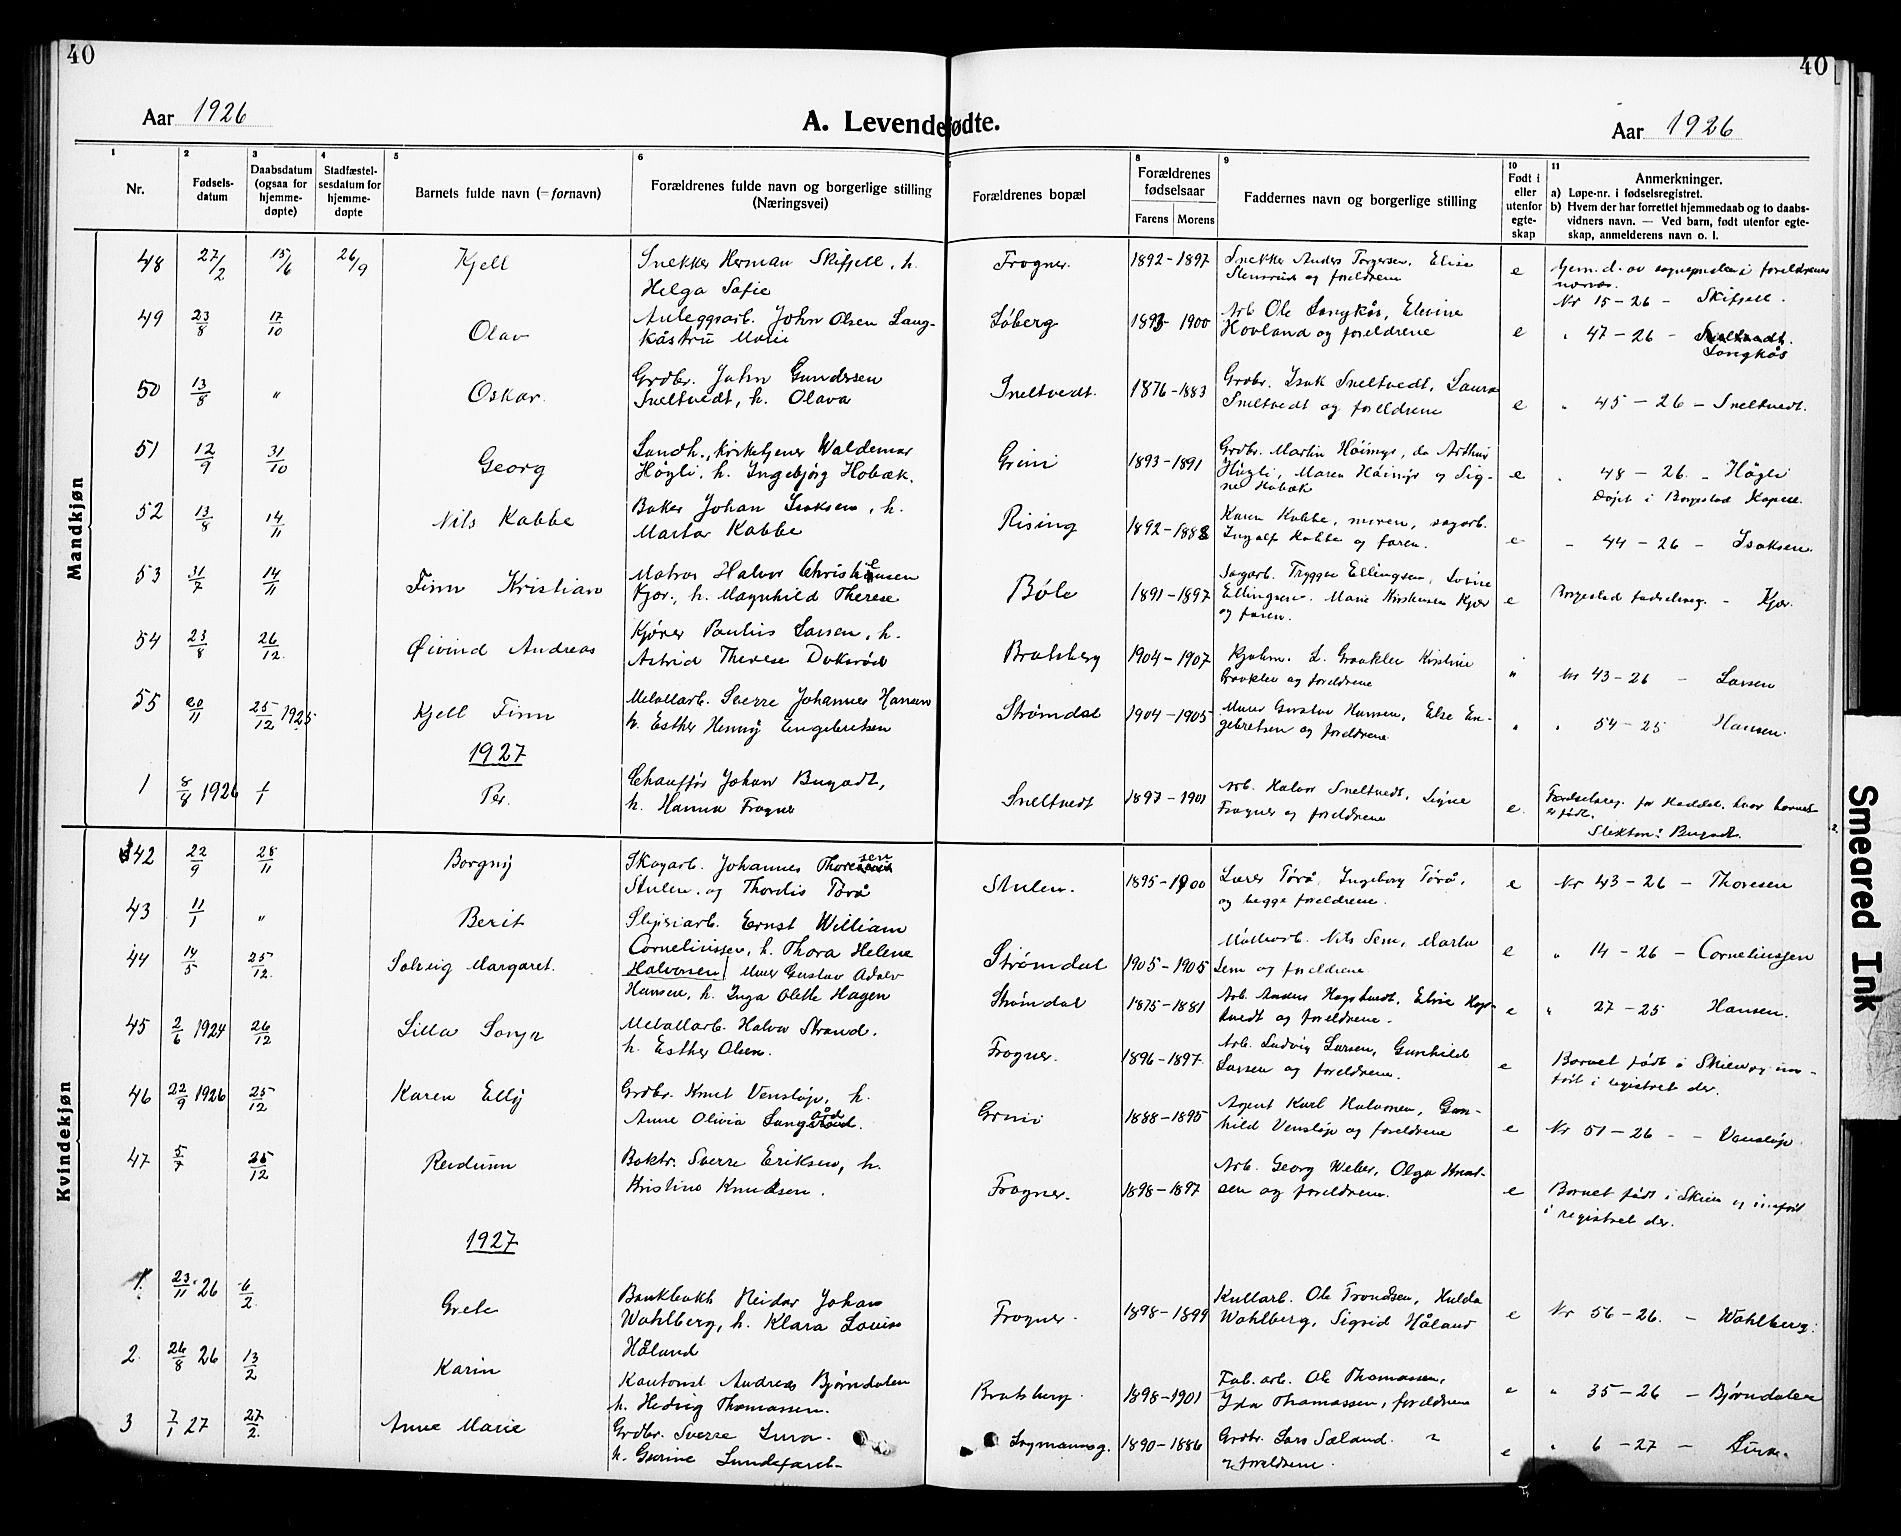 40
40
Aar 1926
A. Levendefødte.
Aar 1926
1
Nr.
2
Fødsels-
datum
3
Daabsdatum
(ogsaa for
hjemme-
døpte)
4
Stadfæstel-
sesdatum for
hjemme-
døpte
5
Barnets fulde navn (= fornavn)
6
Forældrenes fulde navn og borgerlige stilling
(Næringsvei)
Forældrenes bopæl
8
Forældrenes
fødselsaar
Farens Morens
9
Faddernes navn og borgerlige stilling
10
Født i
eller
utenfor
egte-
skap
11
Anmerkninger.
a) Løpe-nr. i fødselsregistret.
b) Hvem der har forrettet hjemmedaab og to daabs-
vidners navn. — Ved barn, født utenfor egte-
skap, anmelderens navn o. l.
Mandkjøn
48 27/2 15/6 26/9 Kjell Snekker Herman Skifjell, h.
Helga Sofie
Frogner. 1892-1897 Snekker Anders Torgersen, Elise
Stensrud og foreldrene
e Hjem.d. av sognepresten i foreldrenes
nærvær.
Nr 15-26 - Skifjell.
49 23/8 17/10 Olav Anleggsarb. John Olsen Lang-
kåstru Marie
Løberg 1893-1900 Arb Ole Langkås, Elevine
Hovland og foreldrene e " 47-26 -
Langkås
50 13/8 " Oskar. Grdbr. John Gundersen
Sneltvedt, h. Olava
Sneltvedt. 1876-1883 Grdbr. Isak Sneltvedt, Laura
Sneltvedt og foreldrene e " 45-26 - Sneltvedt.
51 12/9 31/10 Georg Landh., kirketjener Waldemar
Høgli, h. Ingebjørg Hobæk.
Grini 1893-1891 Grdbr. Martin Høimyr, do Arthur
Høgli, Maren Høimyr og Sig-
ne Hobæk e " 48-26. - Høgli
Døpt i Borgestad Kapell.
52 13/8 14/11 Nils Kabbe Baker Johan Isaksen, h.
Marta Kabbe
Rising 1892-1888 Karen Kabbe, moren, sagarb.
Ingolf Kabbe og faren. e - 44-26 - Isaksen.
53 31/7 14/11 Finn Kristian Matros Halvor Christensen
Kjær., h. Magnhild Therese
Bøle 1891-1897 Sagarb. Trygve Ellingsen, Lovise
Ellingsen. Marie Kristensen Kjær
og faren. e Borgestad fødselsreg. - Kjær.
54 23/8 26/12 Øivind Andreas Kjører Paulus Larsen, h.
Astrid Therese
Bratsberg 1904-1907 Kristine
og foreldrene " Nr 43-26 - Larsen
55 20/11 25/12 1925 Kjell Finn Metallarb. Sverre Johannes Hansen
h. Esther Henny Engebretsen
Strømdal 1904-1905 Murer Gustav Hansen, Else En-
gebretsen og foreldrene " " 54-25 Hansen.
1927
1 8/8 1926 1/1 Per. Chauffør Johan Bugodt,
h. Hanna Frogner
Sneltvedt 1897-1901 Arb. Halvor Sneltvedt, Signe
Frogner og foreldrene e. Fødselsreg. for Heddal, hvor barnet
er født.
Slektsn: Bugodt.
Kvindekjøn
42 22/9 28/11 Borgny Skogarb. Johannes Thoresen
Stulen. og Thordis Tørå
Stulen. 1895-1900 Lærer Tørå, Ingeborg Tørå,
og begge foreldrene. e Nr 43-26 - Thoresen
43 11/1 " Berit Slipriarb. Ernst William
Corneliussen, h. Thora Helene
Halvorsen
Strømdal 1905-1905 Møllerarb. Nils Sem, Marta
Sem og foreldrene e " 14-26 - Corneliussen
44 14/5 25/12. Solveig Margaret. Murer Gustav Adolv
Hansen, h. Inga Olette Hagen
Strømdal 1875-1881 Arb. Anders Hogstvedt, Elvine Hogst-
vedt og foreldrene. e " 27-25 Hansen.
45 2/6 1924 26/12 Lilla Sonja Metallarb. Halvor Strand.
h. Esther Olsen.
Frogner. 1896-1897 Arb. Ludvig Larsen, Gunhild
Larsen og foreldrene. e Barnet født i Skien og inn-
ført i registret der.
46 22/9 1926 25/12 Karen Elly Grdbr. Knut Vensløp, h.
Anne Olivia
Grini 1888-1895 Agent Karl Halvorsen, Gun-
hild Vensløp og foreldrene e Nr 51-26 - - Vensløp.
47 5/7 25/12 Reidunn Boktr. Sverre Eriksen, h.
Kristine Knudsen.
Frogner. 1898-1897 Arb. Georg Weber, Olga Knut-
sen og foreldrene. e Barnet født i Skien og innført
i registret der.
1927
1. 23/11 26 6/2. Grete Bankbokh Reidar Johan
Wahlberg, h. Klara Lovise
Håland
Frogner. 1898-1899 Kullarb. Ole Trondsen, Hulda
Wahlberg, Sigrid Håland e Nr 56-26. - Wahlberg.
2. 26/8 26 13/2 Karin Kontorist Andreas Bjørndalen
h. Hedvig Thomassen.
Bratsberg. 1898-1901 Fab. arb. Ole Thomassen,
Ida Thomassen, foreldrene e " 35-26 - Bjørndalen
3 7/1 27 27/2. Anne Marie Grdbr. Sverre
h. Gurine
1890-1886 Grdbr. Lars Sæland.
foreldrene. e " 6-27 -
Smeared Ink